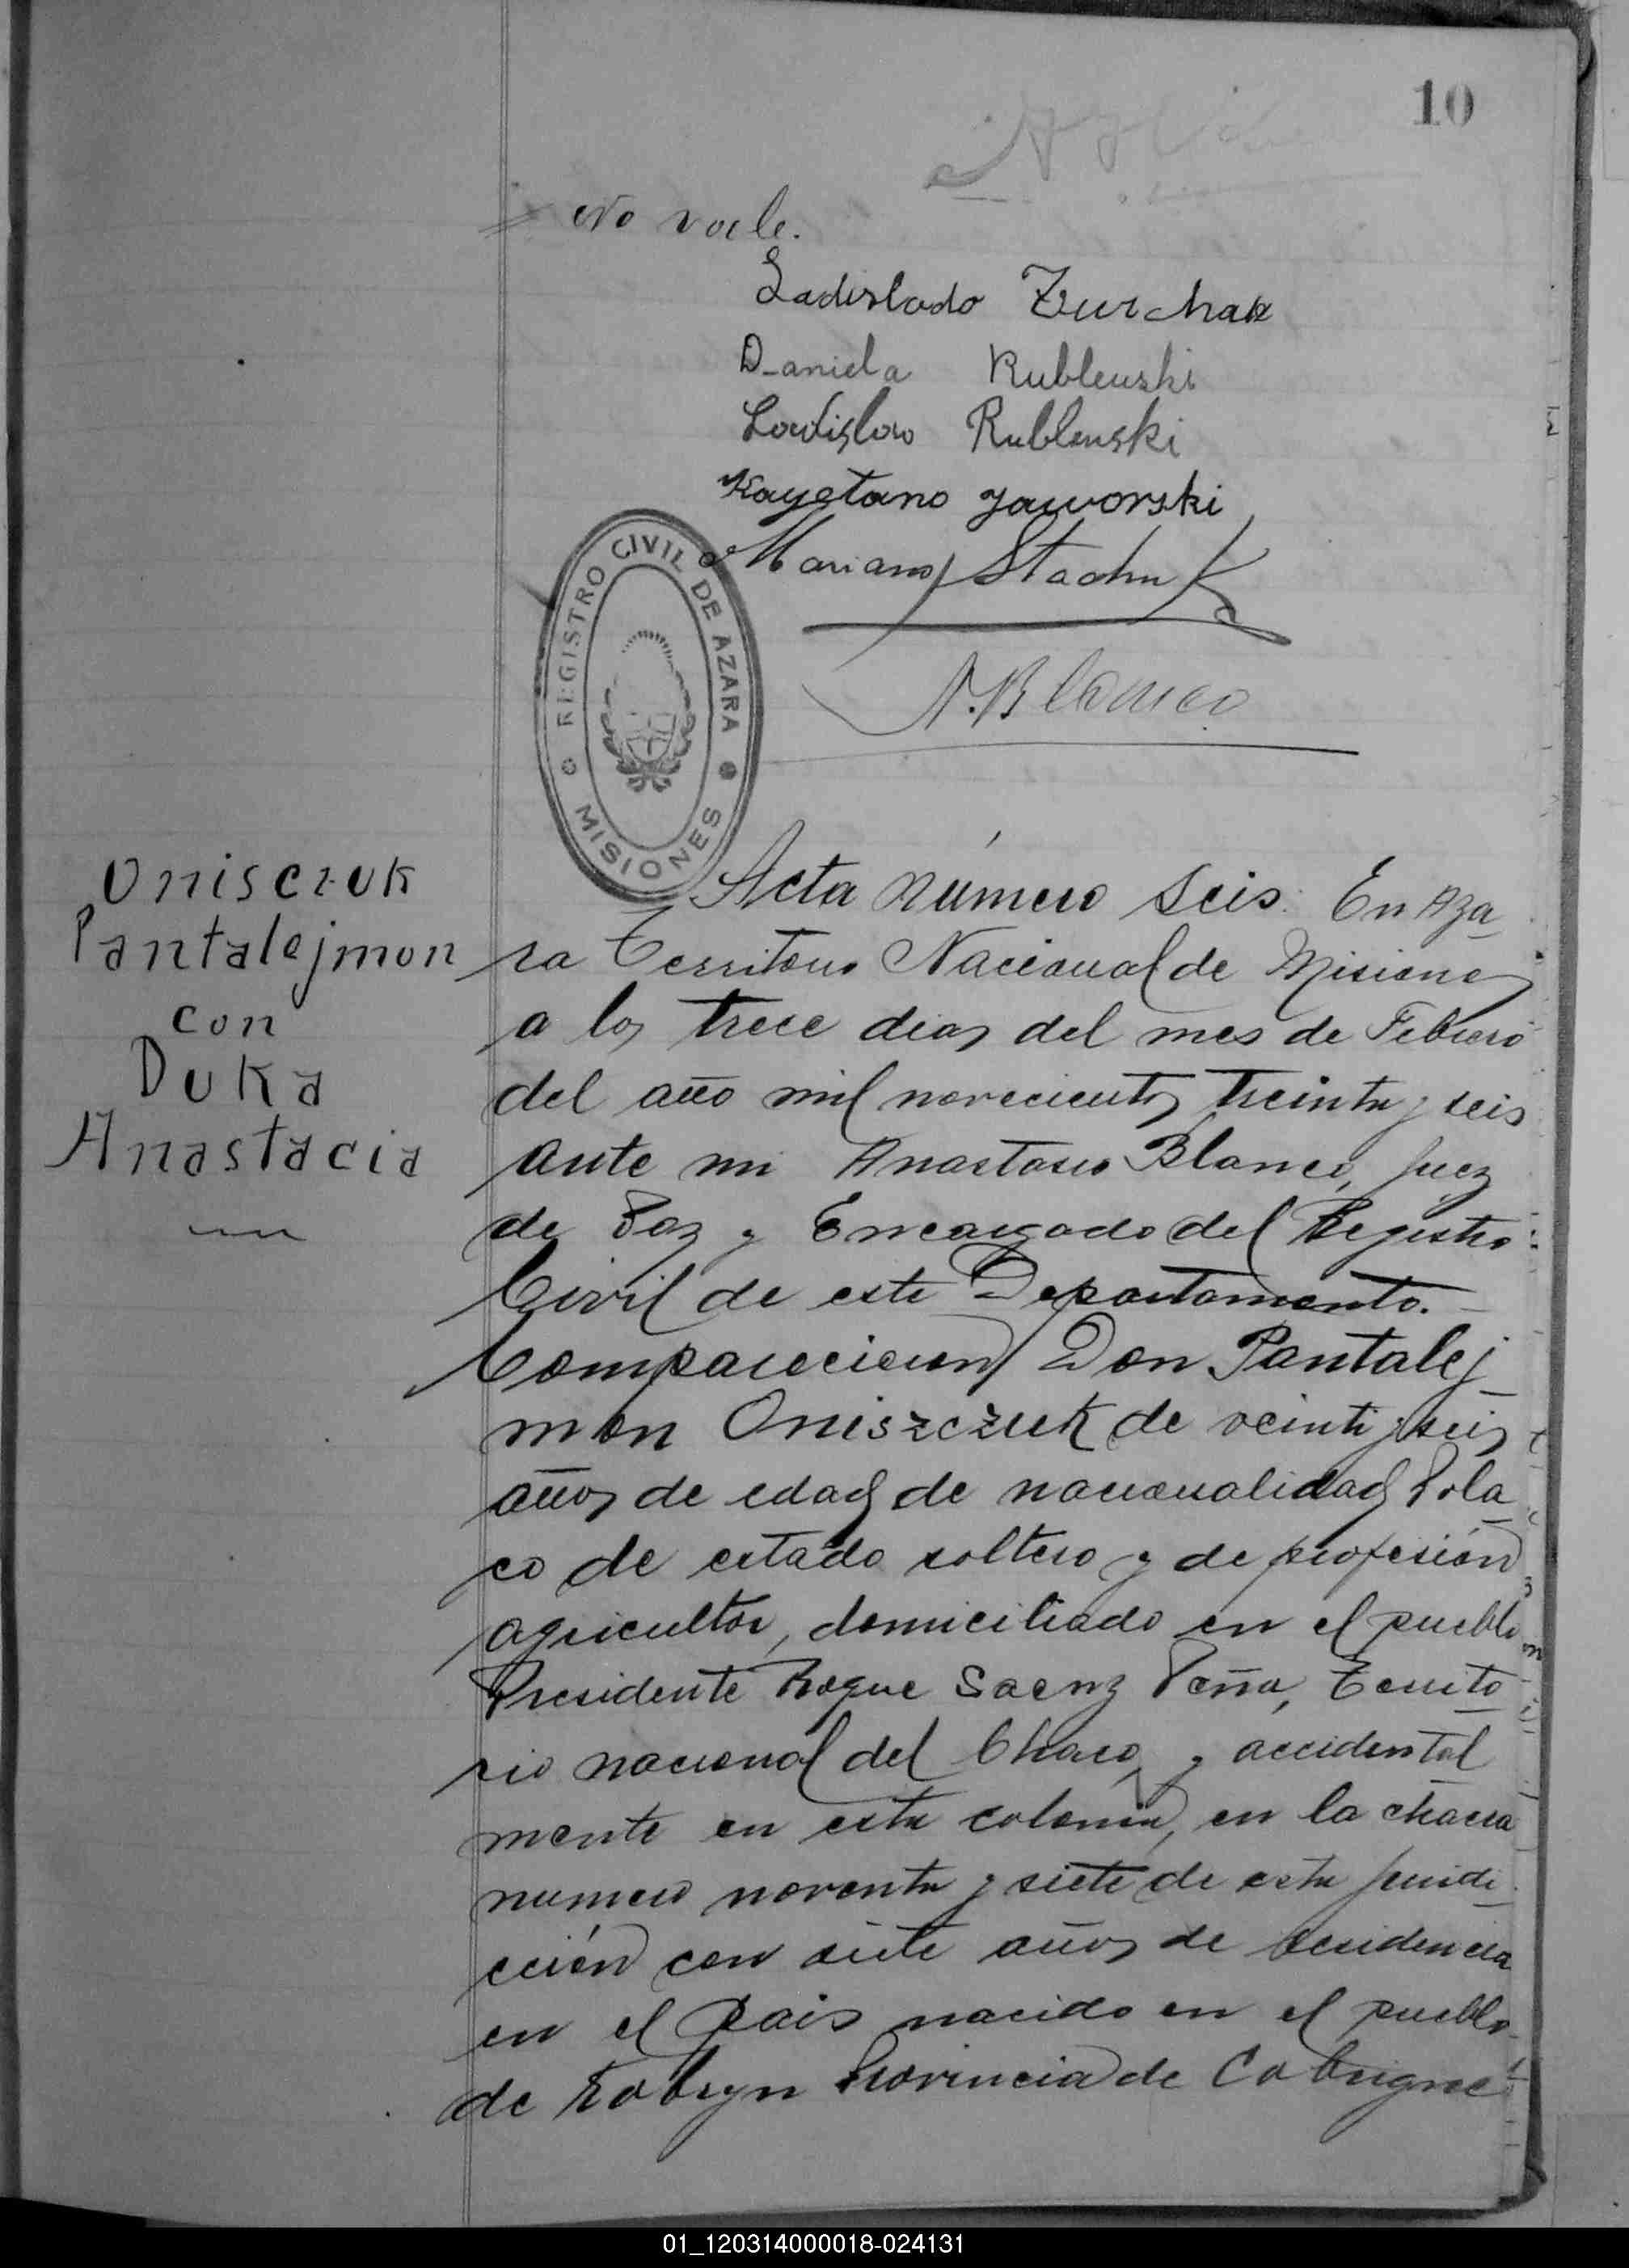 10
No vale.
Ladislado Zurchak
Daniela Rublewski
Ladislao Rublenski
Kayetano Jaworski
Mariano Stachuk
A. Blanco
REGISTRO CIVIL DE AZARA
MISIONES
Onisczuk
Pantalejmon
con
Duka
Anastacia
Acta número seis. En Aza
ra Territorio Nacional de Misiones
a los trece dias del mes de Febrero
del año mil novecientos treinta y seis
ante mi Anastasio Blanco, Juez
de Paz y Encargado del Registro
Civil de este Departamento.
Comparecieron Don Pantalej
mon Oniszczuk de veinti y seis
años de edad de nacionalidad Pola
co de estado soltero y de profesión
agricultor, domiciliado en el pueblo
Presidente Roque Saenz Peña, Territo
rio nacional del Chaco, y accidental
mente en esta colonia, en la chacra
numero noventa y siete de esta juridi
cción con siete años de residencia
en el Pais nacido en el pueblo
de Kobryn Provincia de
01_120314000018-024131